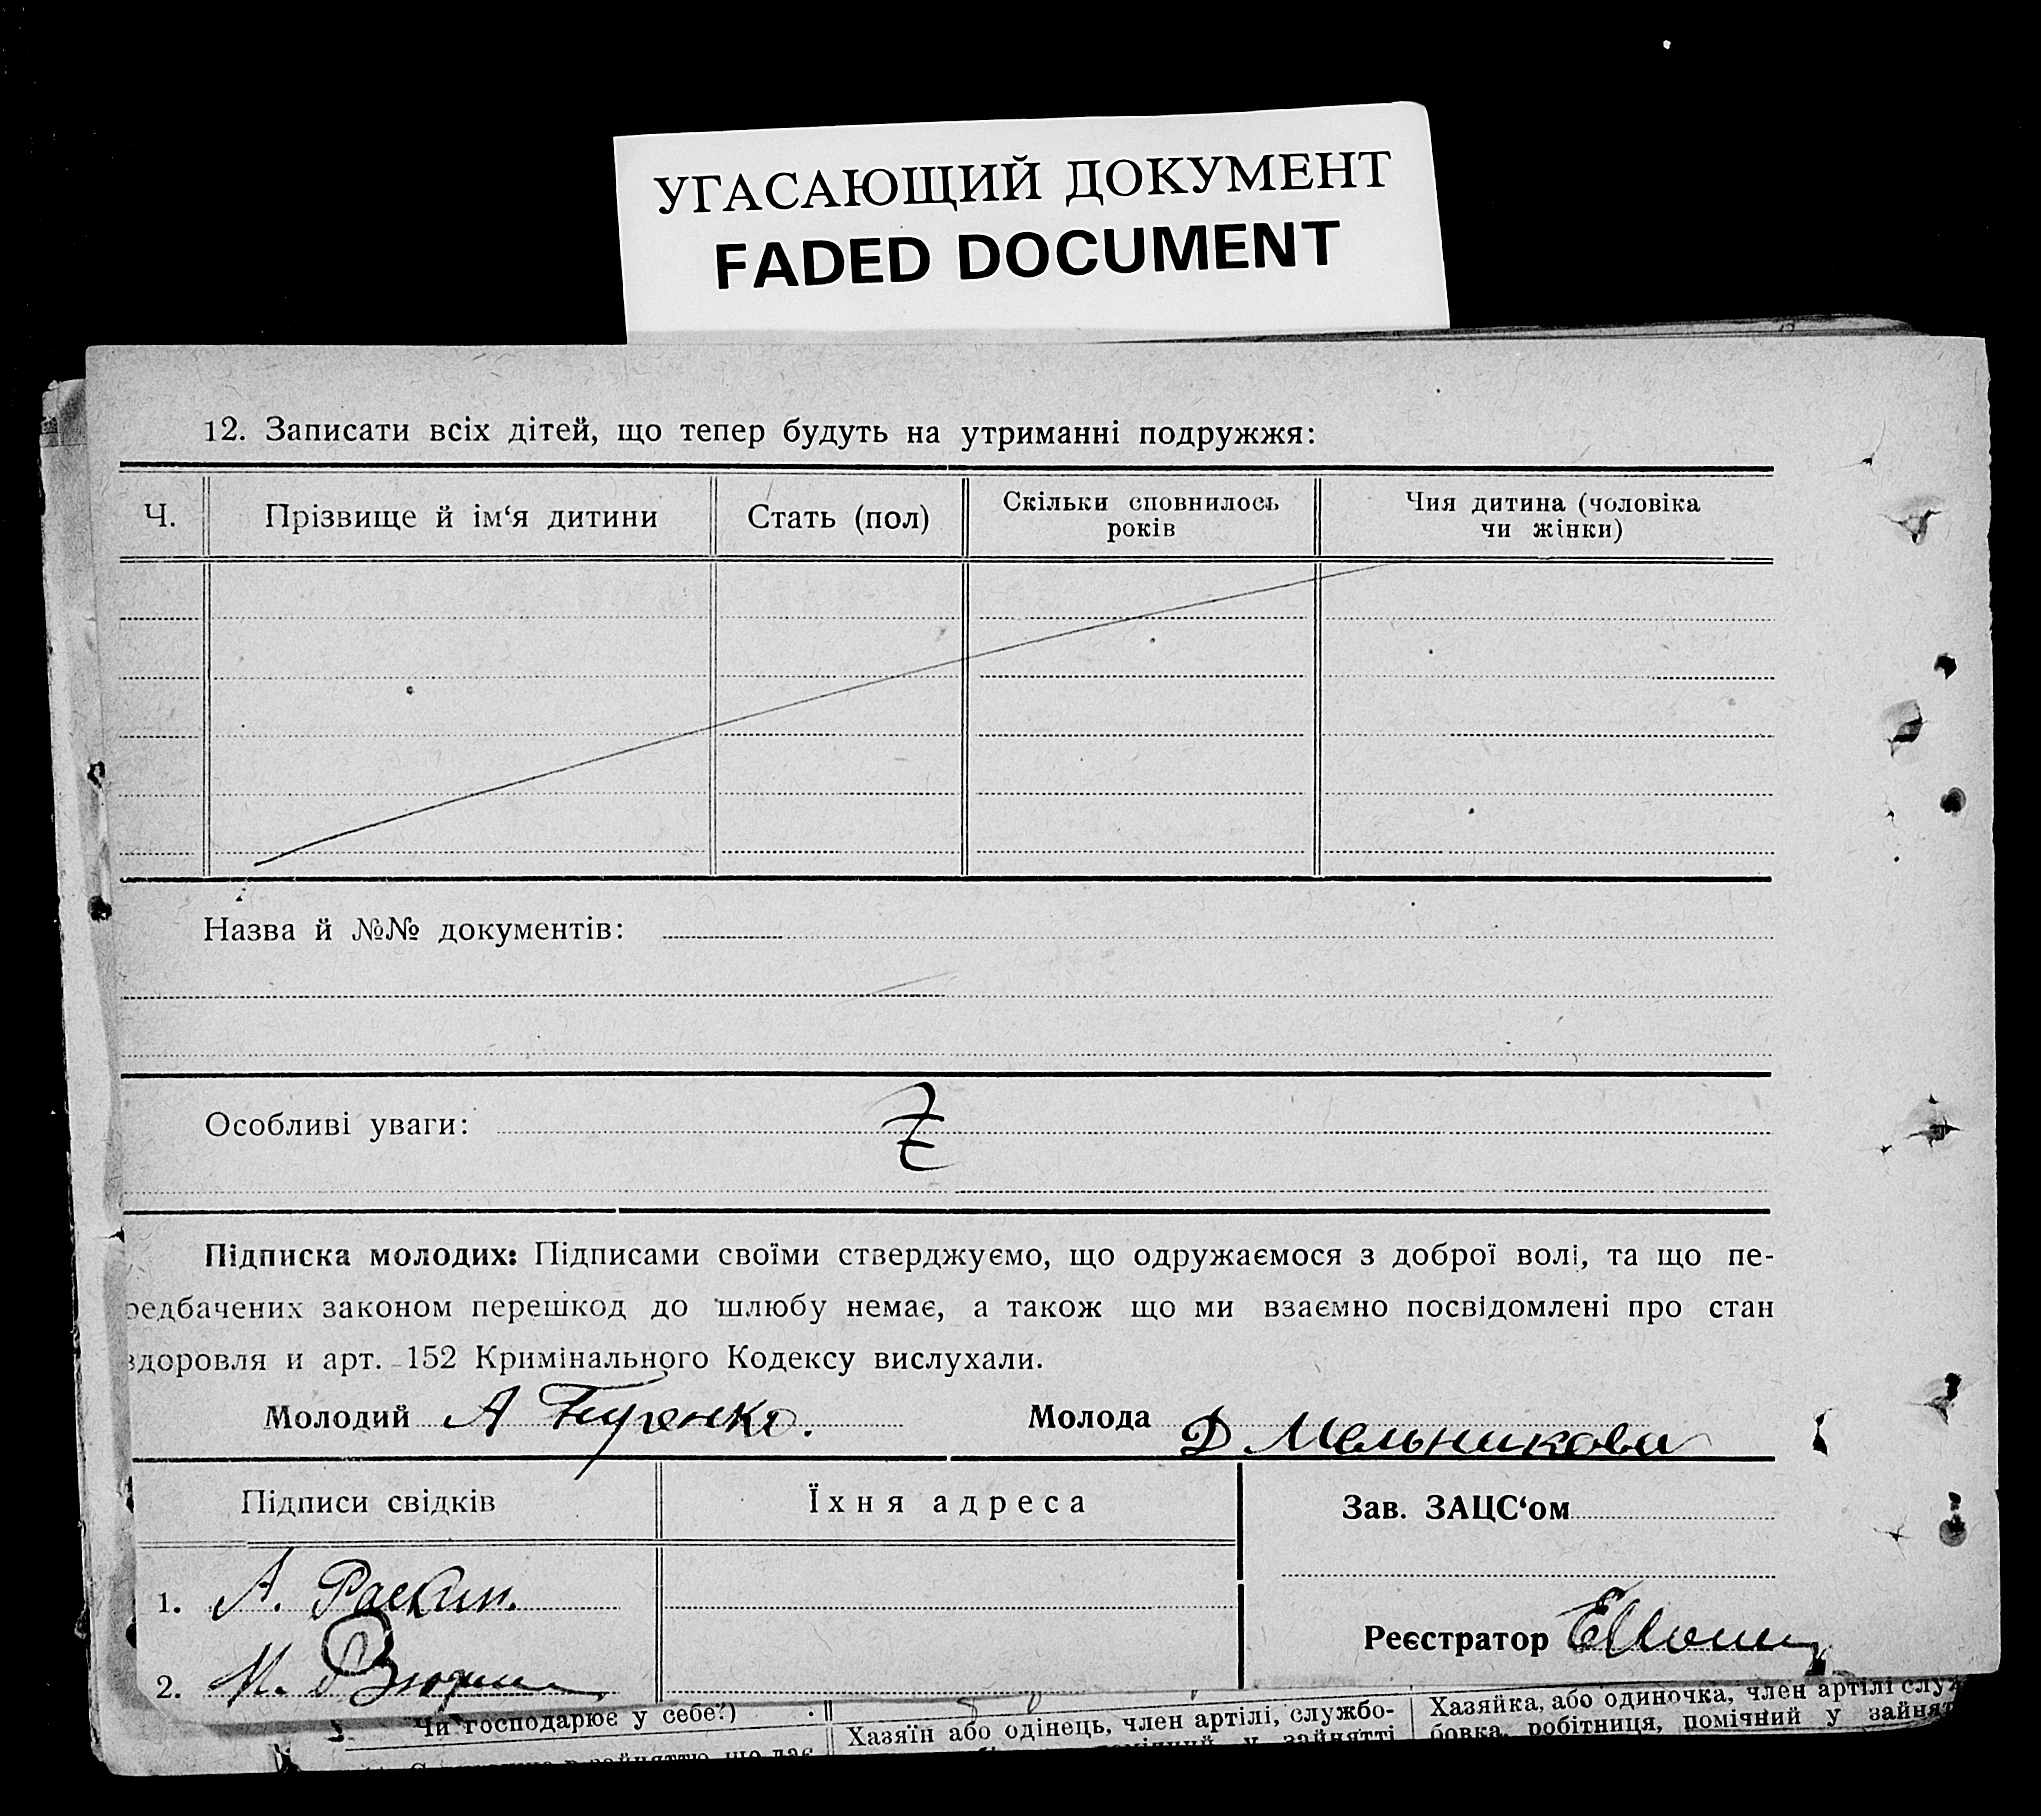 УГАСАЮЩИЙ ДОКУМЕНТ
FADED DOCUMENT
12. Записати всіх дітей, що тепер будуть на утриманні подружжя:
Ч.
Прізвище й ім‘я дитини
Стать (пол)
Скільки сповнилось
років
Чия дитина (чоловіка
чи жінки)
Назва й №№ документів:
Особливі уваги:
Підписка молодих: Підписами своїми стверджуємо, що одружаємося з доброї волі, та що пе-
редбачених законом перешкод до шлюбу немає, а також що ми взаємно посвідомлені про стан
здоровля и арт. 152 Кримінального Кодексу вислухали.
Молодий А
Молода Д Мельникова
Підписи свідків
Їхня адреса
Зав. ЗАЦС‘ом
1. А. Раскин.
Реєстратор
2. М.
Чи господарює у себе?)
Хазяїн або одінець, член артілі, службо-
Хазяйка, або одиночка, член артілі служ
бовка, робітниця, помічний у зайнят